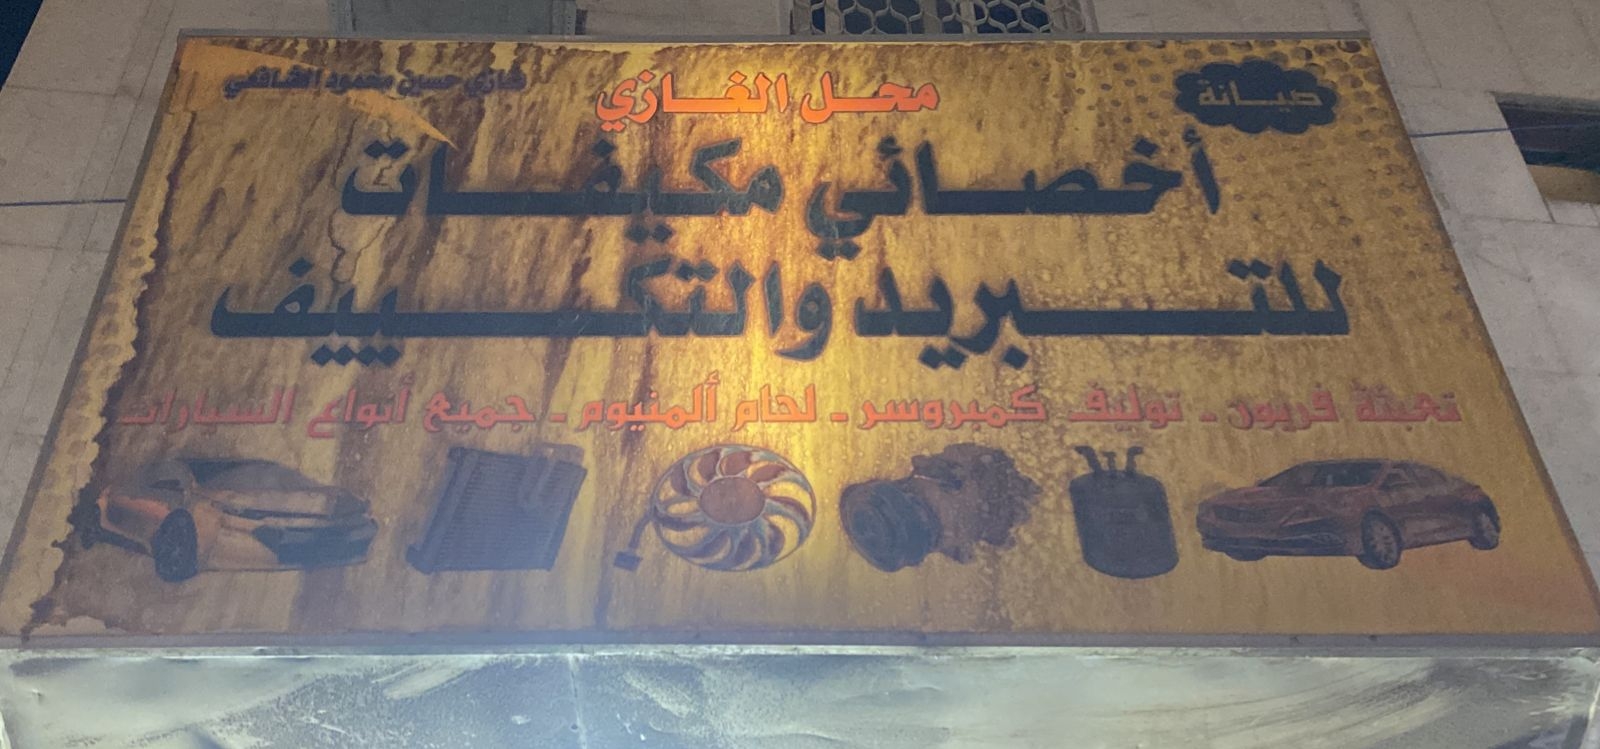 صيانة
محل الغازي
غازي حسان محمود الشافعي
أخصائي مكيفات
للتبريد والتكييف
تعبئة فريون - توليف كمبروسر - لحام ألمنيوم - جميع أنواع السيارات